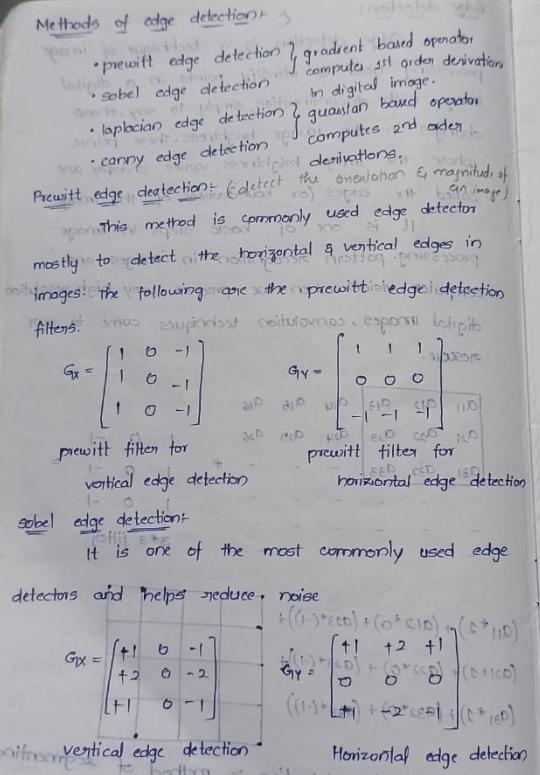 Methods of edge detection:-
• prewitt edge detection } gradient based operator
• sobel edge detection computes 1st order derivation in digital image.
• laplacian edge detection } guassian based operator
• canny edge detection computes 2nd order derivations.
Prewitt edge deatection:- (detect the orientation & magnitude of an image)
This method is commonly used edge detector
mostly to detect the horizontal & vertical edges in
images. The following are the prewitt edge detection
filters.
Gx = [ 1 0 -1
1 0 -1
1 0 -1 ]
Gy = [ 1 1 1
0 0 0
-1 -1 -1 ]
prewitt filter for vertical edge detection
prewitt filter for horiziontal edge detection
sobel edge detection:-
It is one of the most commonly used edge
detectors and helps reduce noise
Gx = [ +1 0 -1
+2 0 -2
+1 0 -1 ]
Gy = [ +1 +2 +1
0 0 0
vertical edge detection
Horizontal edge detection